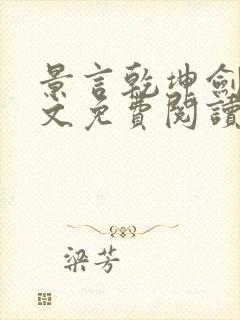 景言乾坤劍
文免費閱讀
梁芳